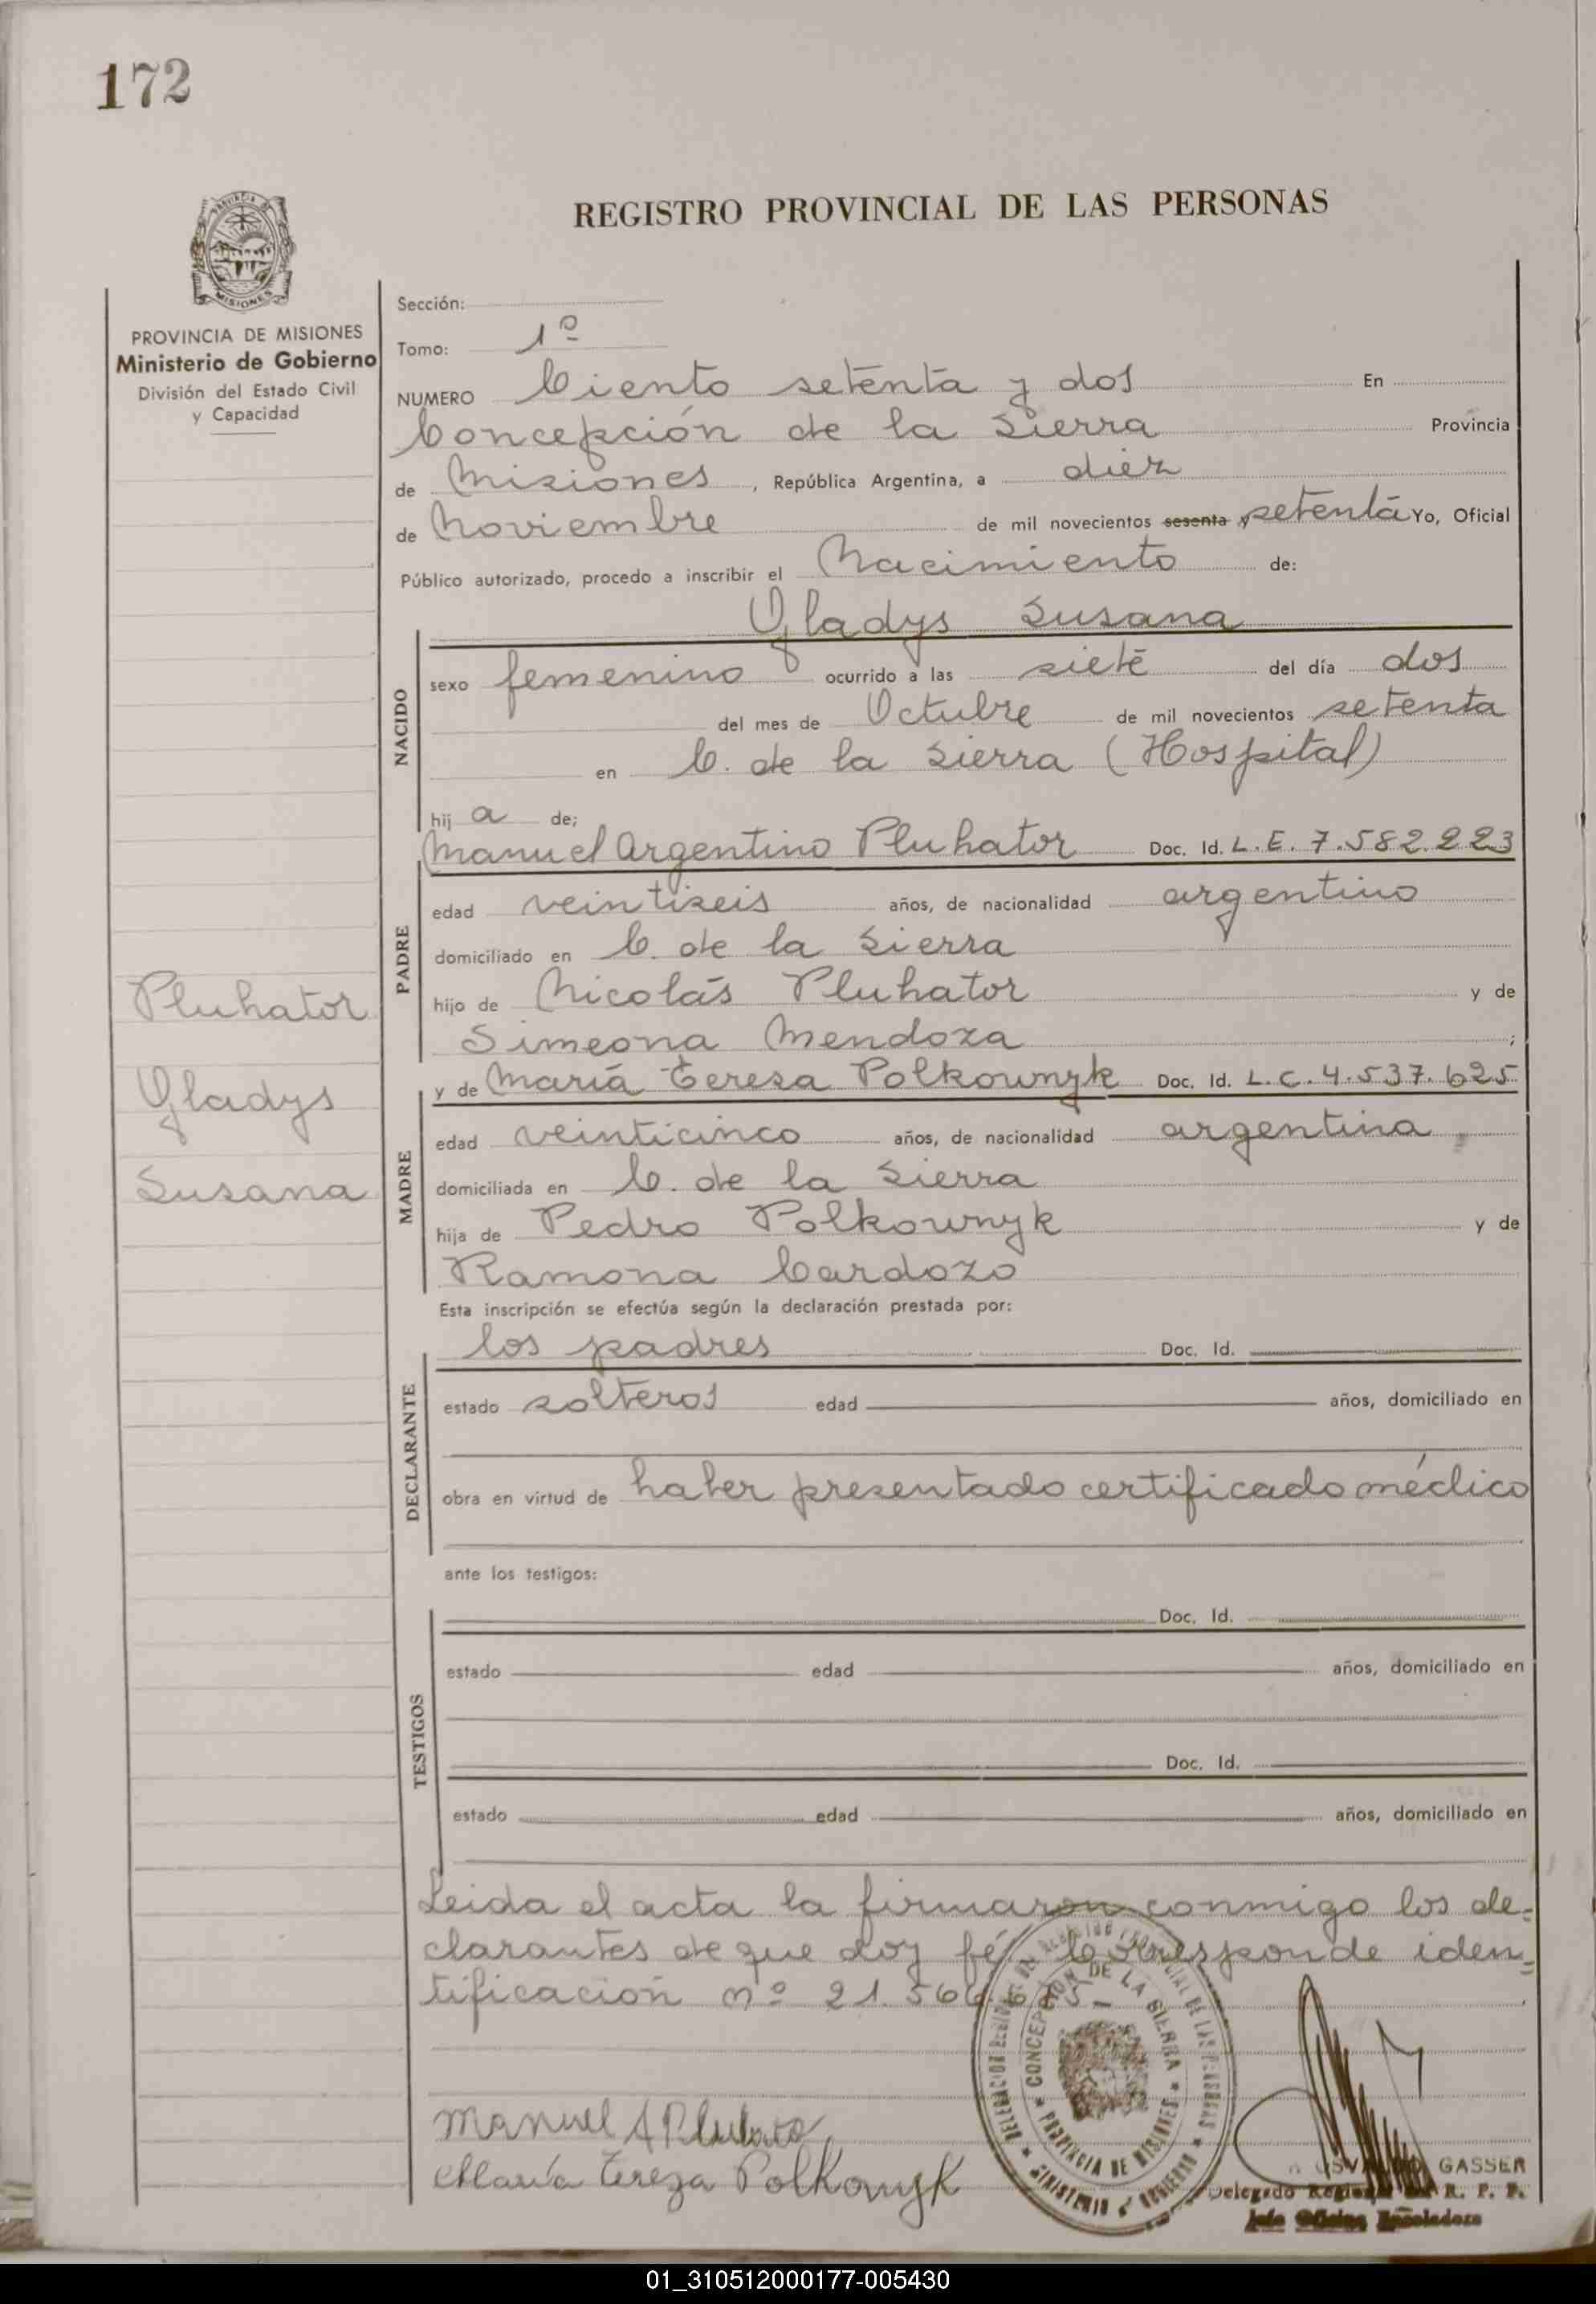 172
REGISTRO PROVINCIAL DE LAS PERSONAS
MISIONES
PROVINCIA DE MISIONES
Ministerio de Gobierno
División del Estado Civil
y Capacidad
Sección:
Tomo: 1º
NUMERO Ciento setenta y dos En
Concepción de la Sierra Provincia
de Misiones, República Argentina, a diez
de Noviembre de mil novecientos sesenta y setenta Yo, Oficial
Público autorizado, procedo a inscribir el Nacimiento de:
Gladys Susana
NACIDO
sexo femenino ocurrido a las siete del día dos
del mes de Octubre de mil novecientos setenta
en C. de la Sierra (Hospital)
hij a de;
Manuel Argentino Pluhator Doc. Id. L.E. 7.582.223
PADRE
edad veintiseis años, de nacionalidad argentino
domiciliado en C. de la Sierra
hijo de Nicolás Pluhator y de
Simeona Mendoza ;
Pluhator
Gladys
Susana
y de María Teresa Polkownyk Doc. Id. L.C. 4.537.625
MADRE
edad veinticinco años, de nacionalidad argentina
domiciliada en C. de la Sierra
hija de Pedro Polkownyk y de
Ramona Cardozo
Esta inscripción se efectúa según la declaración prestada por:
los padres Doc. Id.
DECLARANTE
estado solteros edad años, domiciliado en
obra en virtud de haber presentado certificado médico
ante los testigos:
Doc. Id.
TESTIGOS
estado edad años, domiciliado en
Doc. Id.
estado edad años, domiciliado en
Leida el acta la firmaron conmigo los de=
clarantes de que doy fé. Corresponde iden=
tificación nº 21.566.
CONCEPCION DE LA SIERRA
PROVINCIA DE MISIONES
MINISTERIO GOBIERNO
Manuel A Pluhato
María Tereza Polkowyk
GASSER
Delegado R. P. P.
Jefe Oficina Enroladora
01_310512000177-005430